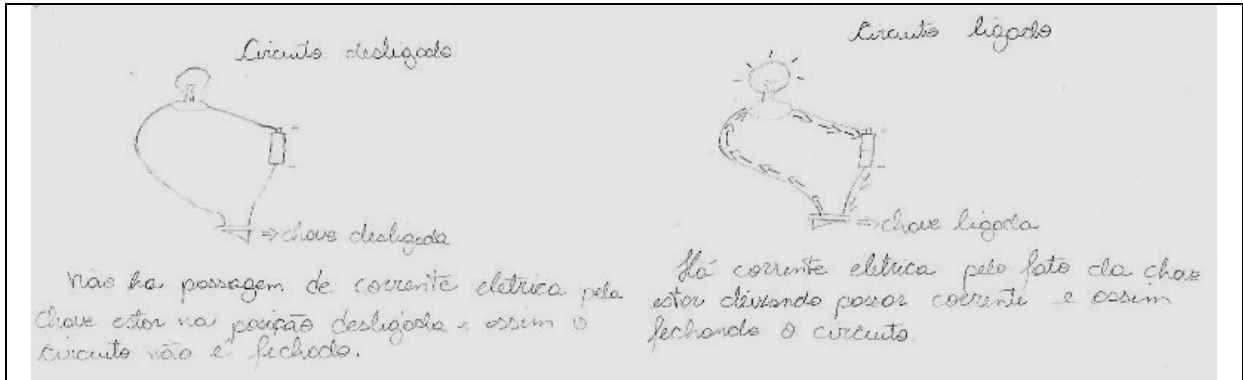 Circuito desligado
+
-
⇒ chave desligada
Não ha passagem de corrente eletrica pela
chave estar na posição desligada e assim o
circuito não é fechado.
Circuito ligado
+
-
⇒ chave ligada
Há corrente eletrica pelo fato da chave
estar deixando passar corrente e assim
fechando o circuito.